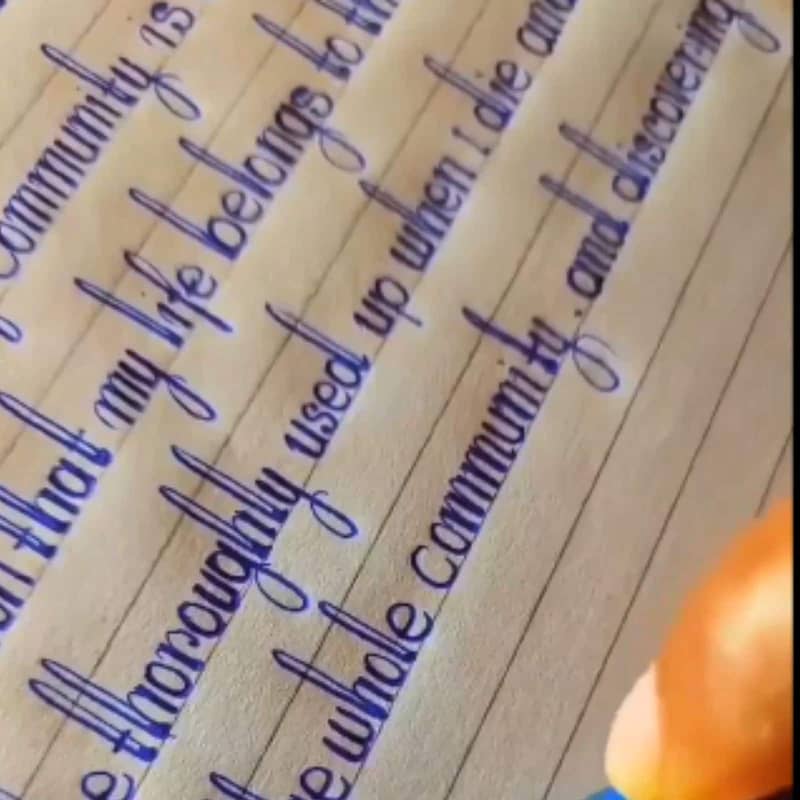 community is
that my life belongs to
thoroughly used up when I die and
whole community . and discovering